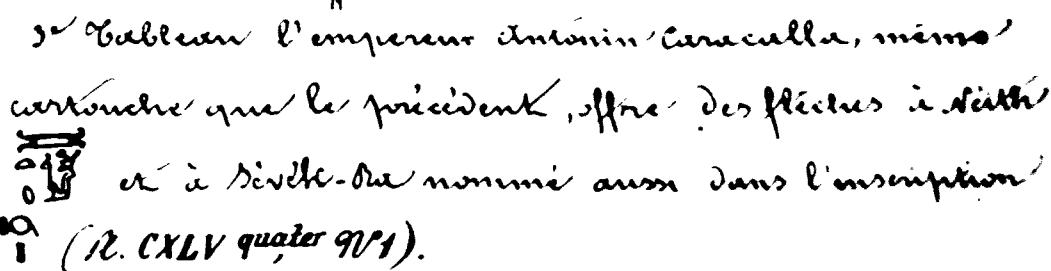 3e Tableau l'empereur Antonin Caracalla, même
cartouche que le précédent, offre des flèches à Néith
et à Sévék-Ra nommé aussi dans l'inscription
(Pl. CXLV quater No 1).